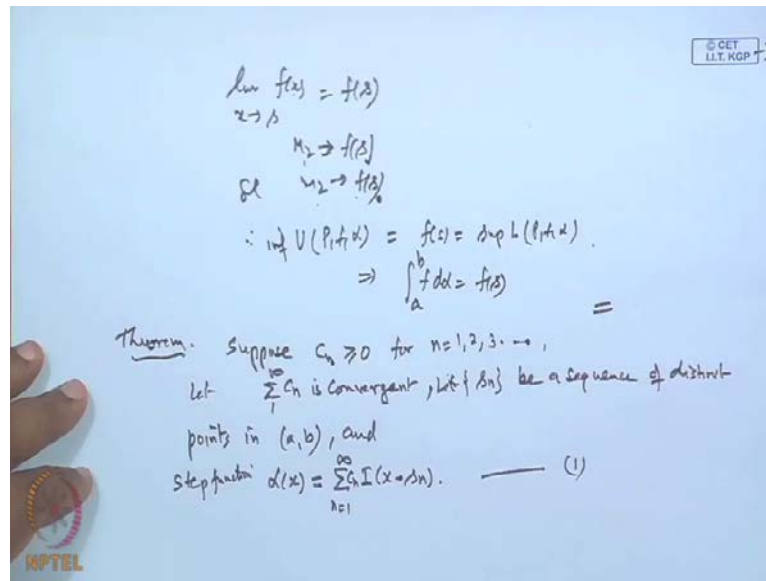 © CET
I.I.T. KGP
lim f(x) = f(s)
x→s
M₂ → f(s)
m₂ → f(s)
∴ inf U(P,f,α) = f(s) = sup L(P,f,α).
⇒ ∫ₐᵇ f dα = f(s)
=
Theorem. Suppose Cn ≥ 0 for n=1,2,3....,
Let ∑₁^∞ Cn is convergent, Let {sn} be a sequence of distinct
points in (a,b), and
step function α(x) = ∑_{n=1}^∞ Cn I(x-sn). ——— (1)
NPTEL